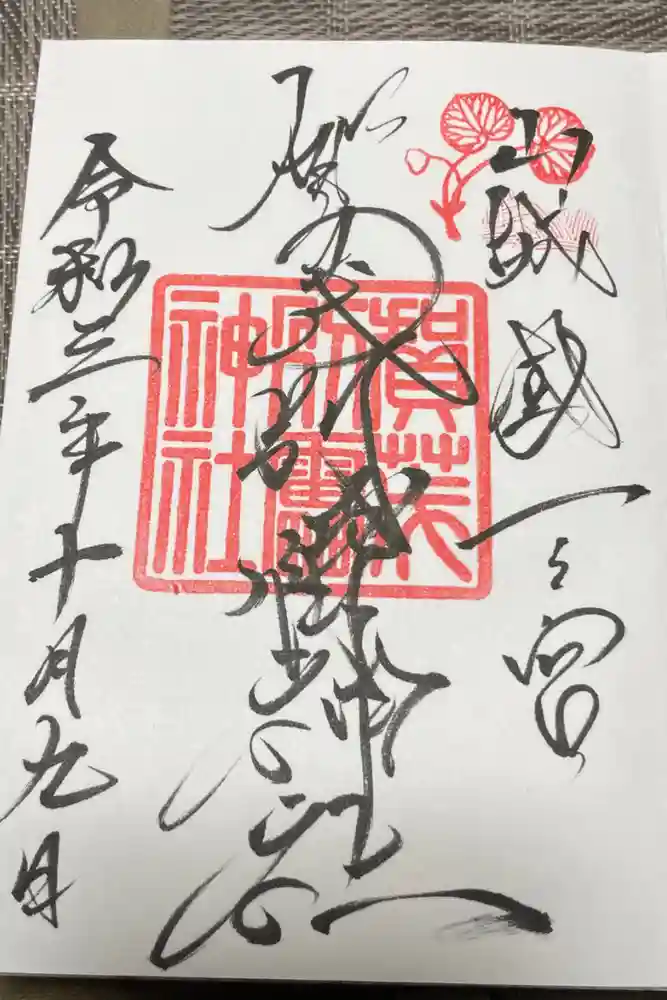 山城國一之宮
賀茂別雷神社
賀茂
別雷
神社
令和三年十月九日